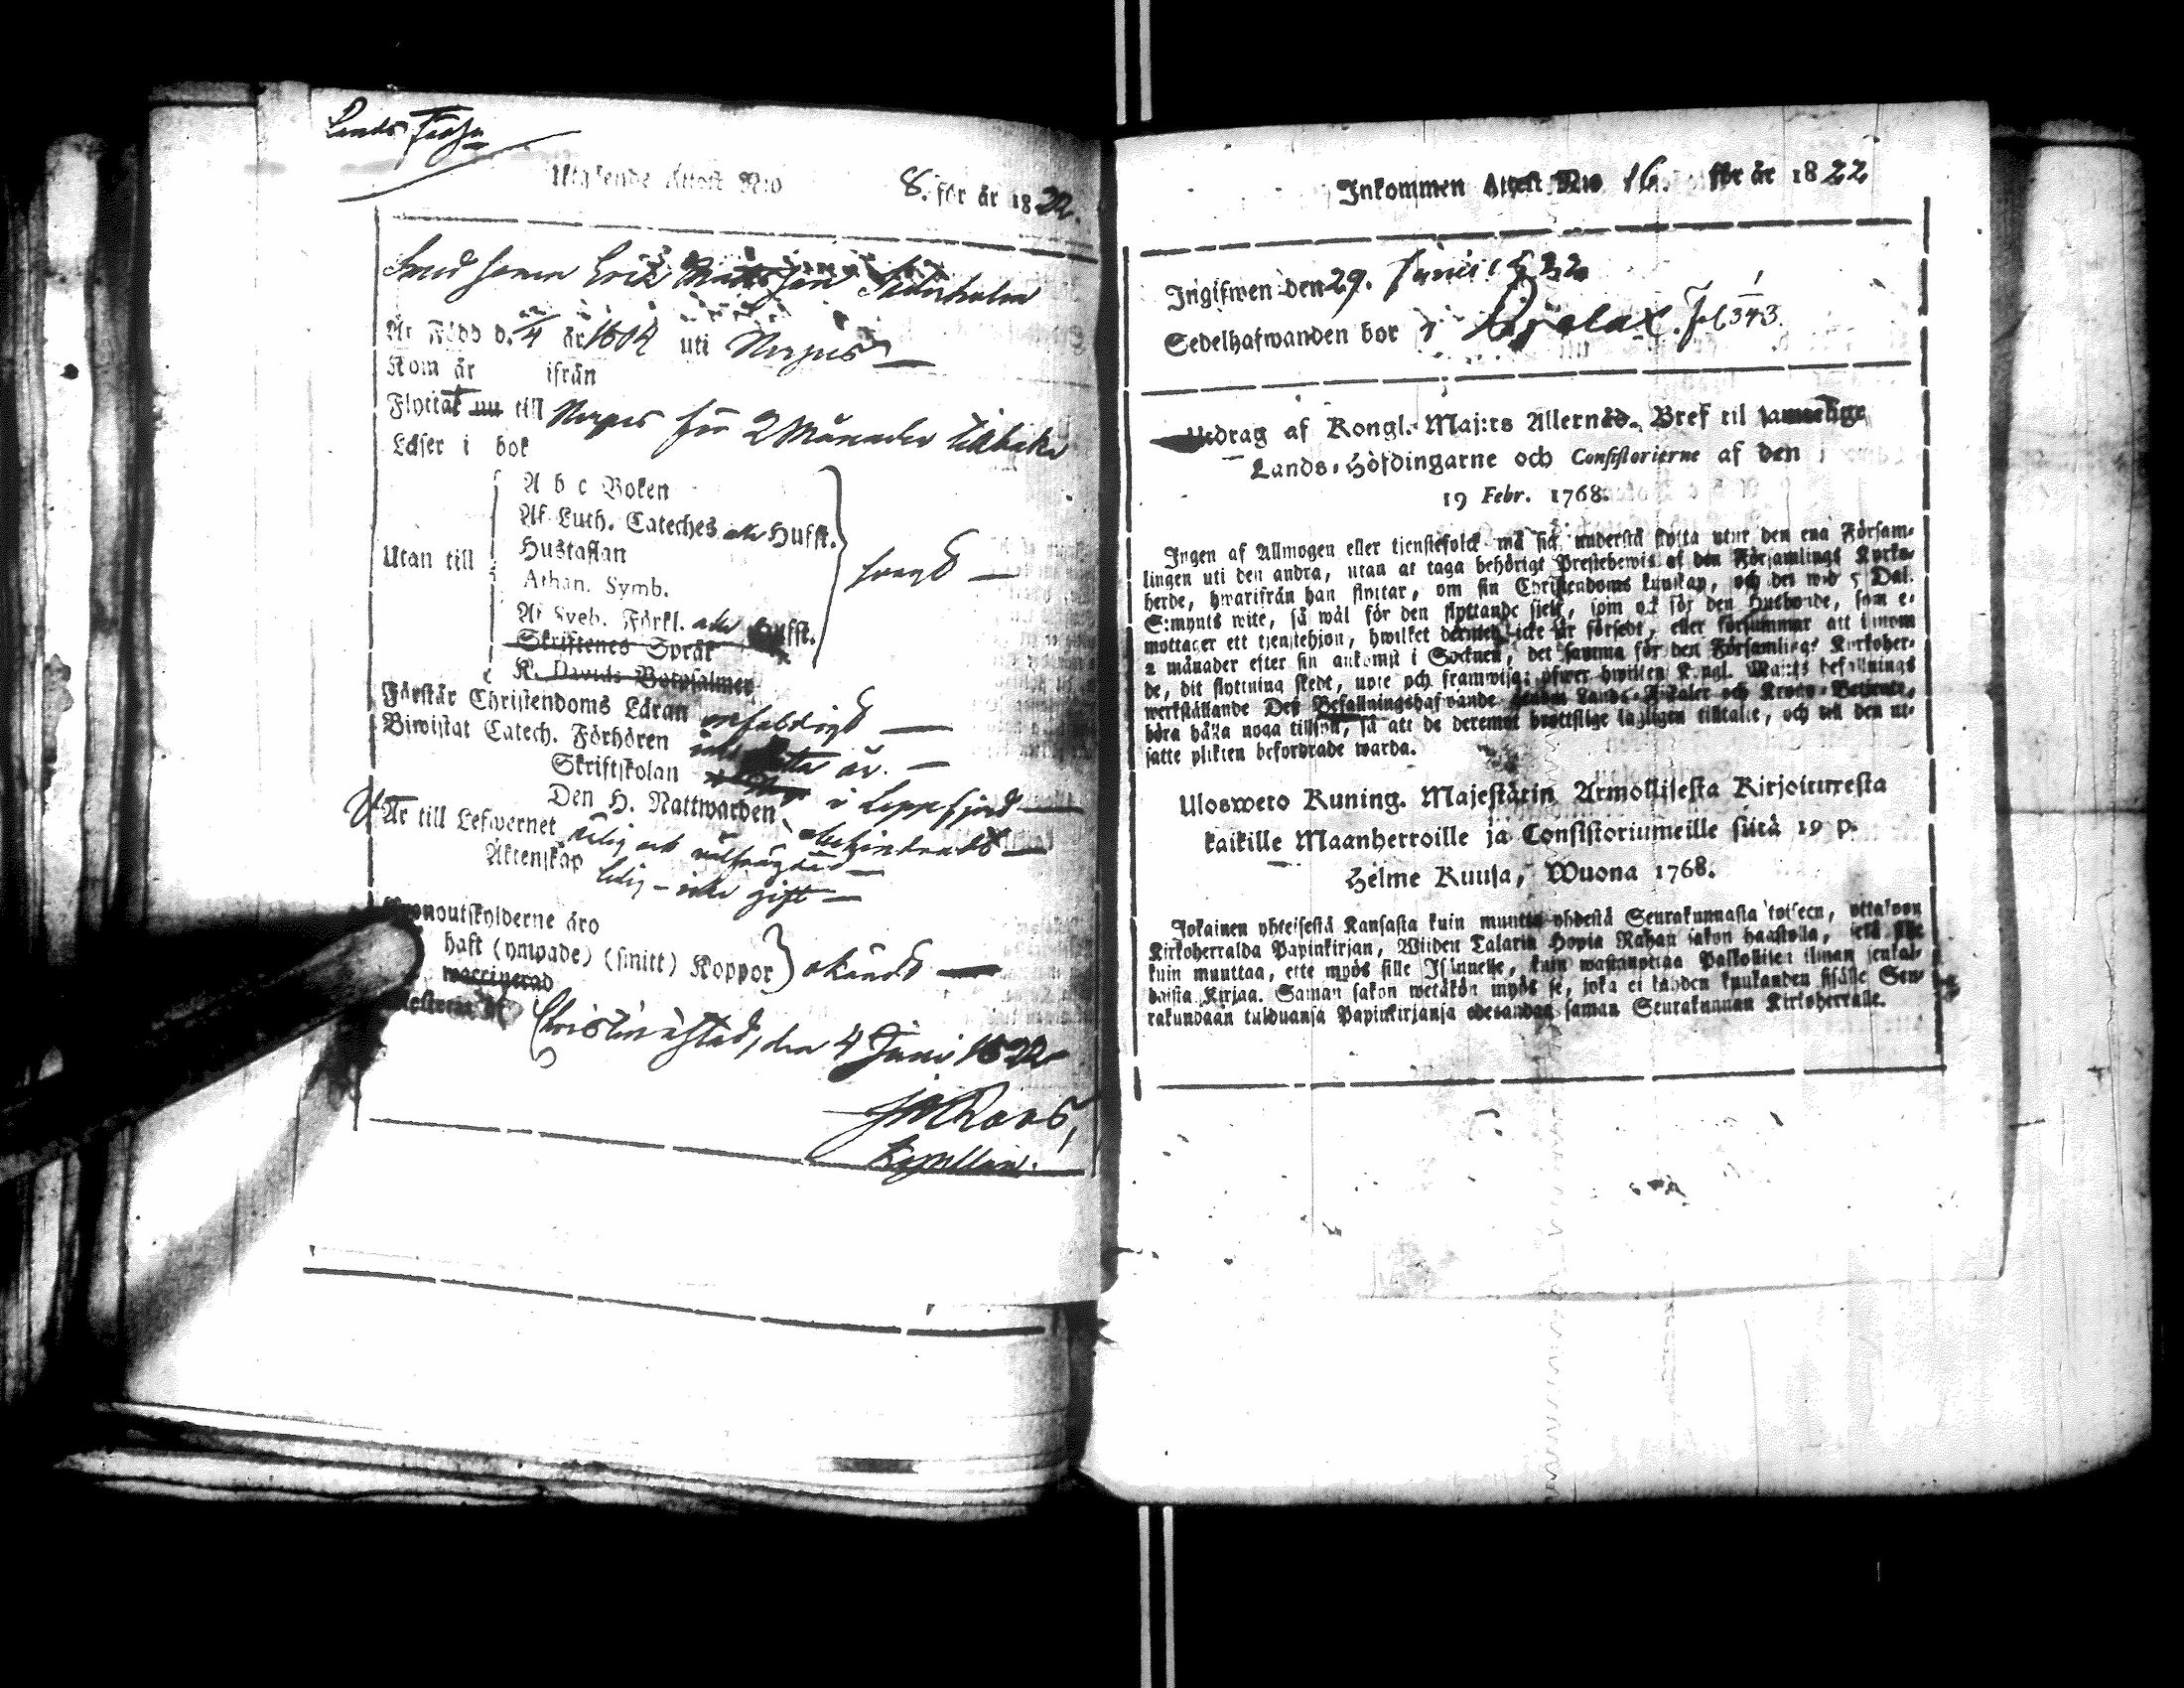 Utgående Attest N:o 8. för år 1822.
Erik Mattsson
Är Född d. 4 år 1804 uti Nerpes
Kom år ifrån
Flyttat nu till Nerpes för 2 Månader tilbaka
Läser i bok
Utan till
A b c Boken
Af Luth. Cateches. Husfl.
Hustaflan
Athan. Symb.
Af Sveb. Förkl.
Skriftenes Språk
K. Davids Botpsalmer
svagt
Förstår Christendoms Läran enfaldigt
Biwistat Catech. Förhören år.
Skriftskolan
Den H. Nattwarden i Lappfjerd
Är till Lefwernet
Äktenskap ledig – icke gift
Kronoutskylderne äro
haft (ympade) (smitt) Koppor okändt
vaccinerad
Christinæstad, den 4 Juni 1822
Kapellan.
Inkommen Attest N:o 16. för år 1822
Ingifwen den 29. Junii 1822
Sedelhafwanden bor i Fol 343.
Utdrag af Kongl. Maj:ts Allernåd. Bref til samtelige
Lands-Höfdingarne och Consistorierne af den
19 Febr. 1768.
Ingen af Allmogen eller tjenstefolck må sig understå flytta utur den ena Försam-
lingen uti den andra, utan at taga behörigt Prestebewis af den Församlings Kyrko-
herde, hwarifrån han flyttar, om sin Christendoms kunskap, och det wid 5 Dal.
S:mynts wite, så wäl för den flyttande sielf, som ock för den Husbonde, som e-
mottager ett tjenstehjon, hwilket dermed icke är försedt, eller försummar att innom
2 månader efter sin ankomst i Socknen, det samma för den Församlings Kyrkoher-
de, dit flyttning skedt, upte och framwisa; öfwer hwilket Kongl. Maj:ts befallnings
werkställande Dess Befallningshafwande genom Lands-Fiskaler och Krono-Betjente,
böra hålla noga tillsyn, så att de deremot brottslige lagligen tilltalte, och till den ut-
satte plikten befordrade warda.
Uloswetö Kuning. Majestätin Armollisesta Kirjoituxesta
kaikille Maanherroille ja Consistoriumeille siitä 19 p.
Helme Kuusa, Wuona 1768.
Jokainen yhteisestä Kansasta kuin muutta yhdestä Seurakunnasta toiseen, ottakoon
Kirkoherralda Papinkirjan, Wiiden Talarin Hopia Rahan sakon haastolla, sekä sille
kuin muuttaa, ette myös sille Isännelle, kuin wastanottaa Palkollisen ilman senkal-
daista Kirjaa. Saman sakon wetäkön myös se, joka ei kahden kuukauden sisälle Seu-
rakundaan tulduansa Papinkirjansa edesandaa saman Seurakunnan Kirkoherralle.